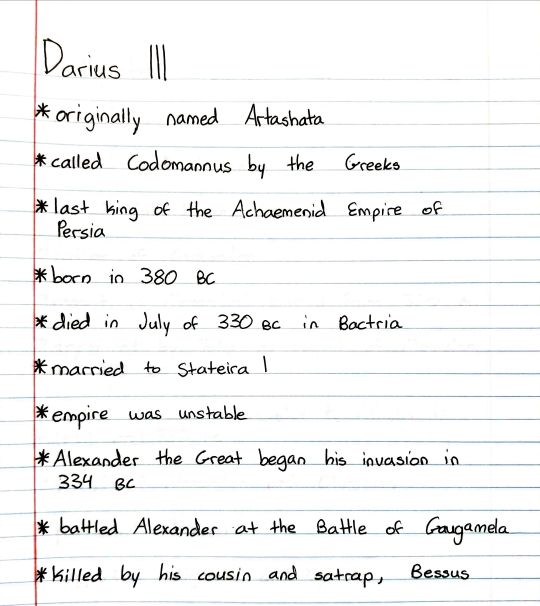 Darius III
* originally named Artashata
* called Codomannus by the Greeks
* last king of the Achaemenid Empire of
Persia
* born in 380 BC
* died in July of 330 BC in Bactria
* married to Stateira I
* empire was unstable
* Alexander the Great began his invasion in
334 BC
* battled Alexander at the Battle of Gaugamela
* killed by his cousin and satrap, Bessus